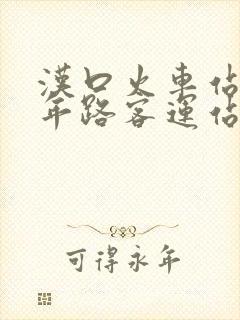 漢口火車站
年路客運站
可得永年